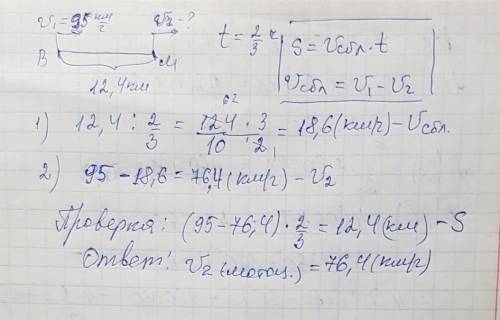 v₁ = 95 км/ч v₂ - ? t = 2/3 ч S = vсбл · t
B M vсбл = v₁ - v₂
12,4 км
1) 12,4 : 2/3 = 124 · 3 / 10 · 2 = 18,6 (км/ч) - vсбл.
62 1
2) 95 - 18,6 = 76,4 (км/ч) - v₂
Проверка: (95 - 76,4) · 2/3 = 12,4 (км) - S
Ответ: v₂ (мотоц.) = 76,4 (км/ч)